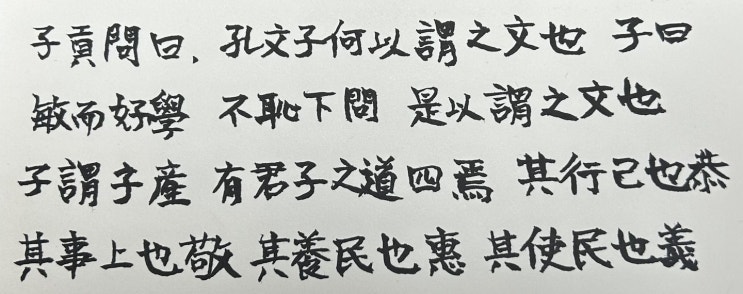 子貢問曰, 孔文子何以謂之文也 子曰
敏而好學 不恥下問 是以謂之文也
子謂子産 有君子之道四焉 其行己也恭
其事上也敬 其養民也惠 其使民也義